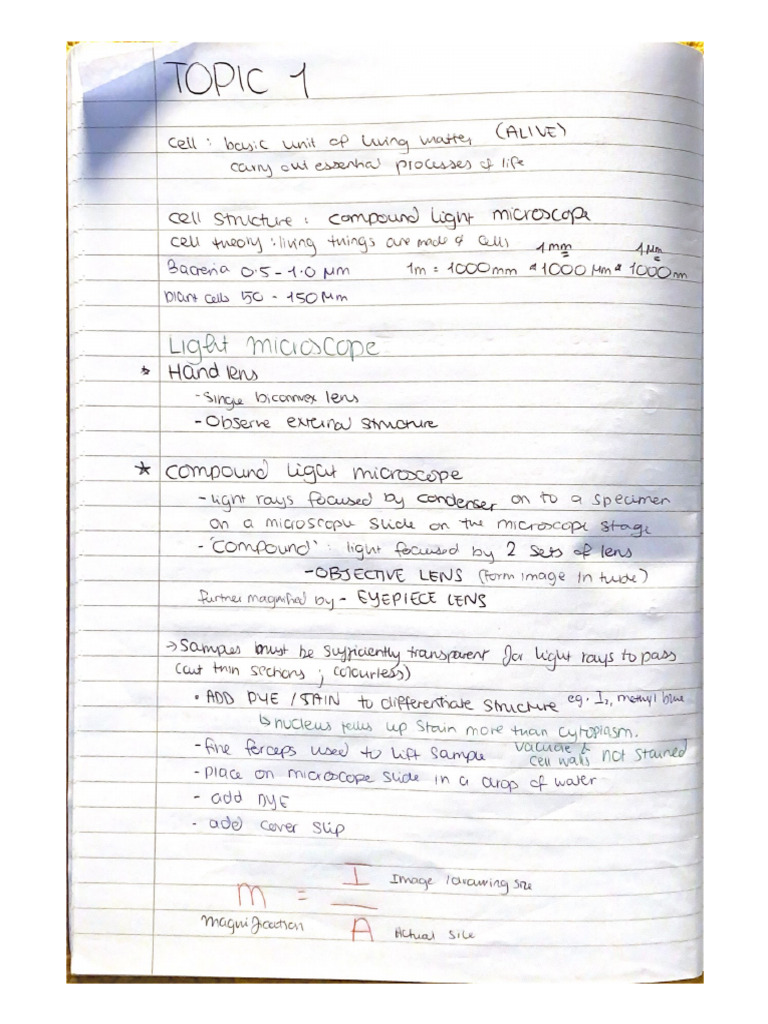 TOPIC 1
cell : basic unit of living matter (ALIVE)
carry out essential processes of life
cell structure : compound light microscope
cell theory : living things are made of cells
1mm 1μm
Bacteria 0.5 - 1.0 μm 1m = 1000mm 1000 μm 1000nm
plant cells 50 - 150 μm
Light microscope
Hand lens
- Single biconvex lens
- Observe external structure
★ compound light microscope
- light rays focused by condenser on to a specimen
on a microscope slide on the microscope stage
- 'compound' : light focused by 2 sets of lens
- OBJECTIVE LENS (form image in tube)
further magnified by - EYEPIECE LENS
→ Samples must be sufficiently transparent for light rays to pass
(cut thin sections ; colourless)
• ADD DYE / STAIN to differentiate structure eg. I₂, methyl blue
↳ nucleus up stain more than cytoplasm.
vacuole &
- fine forceps used to lift sample cell walls not stained
- place on microscope slide in a drop of water
- add DYE
- add cover slip
M = I / A
Image / drawing size
Magnification
Actual size